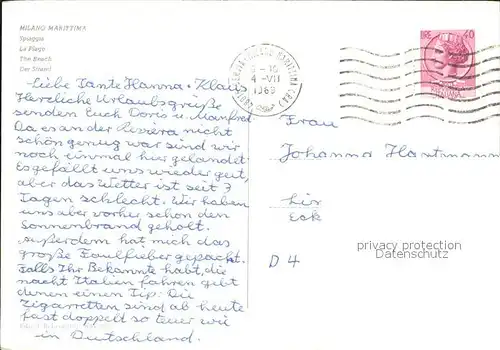 MILANO MARITTIMA
Spiaggia
La Plage
The Beach
Der Strand
Liebe Tante Hanna + Klaus
Herzliche Urlaubsgrüße
senden Euch Doris u. Manfred
Da es an der Reviera nicht
schön genug war sind wir
noch einmal hier gelandet
Es gefällt uns wieder gut,
aber das Wetter ist seit 3
Tagen schlecht. Wir haben
uns aber vorher schon den
Sonnenbrand geholt.
Außerdem hat mich das
große Faulfieber gepackt.
Falls Ihr Bekannte habt, die
nacht Italien fahren gebt
denen einen Tip: Die
Zigarretten sind ab heute
fast doppelt so teuer wie
in Deutschland.
LIRE 40
4-VII
1969
Frau
Johanna Hartmann
Eck
D4
privacy protection
Datenschutz